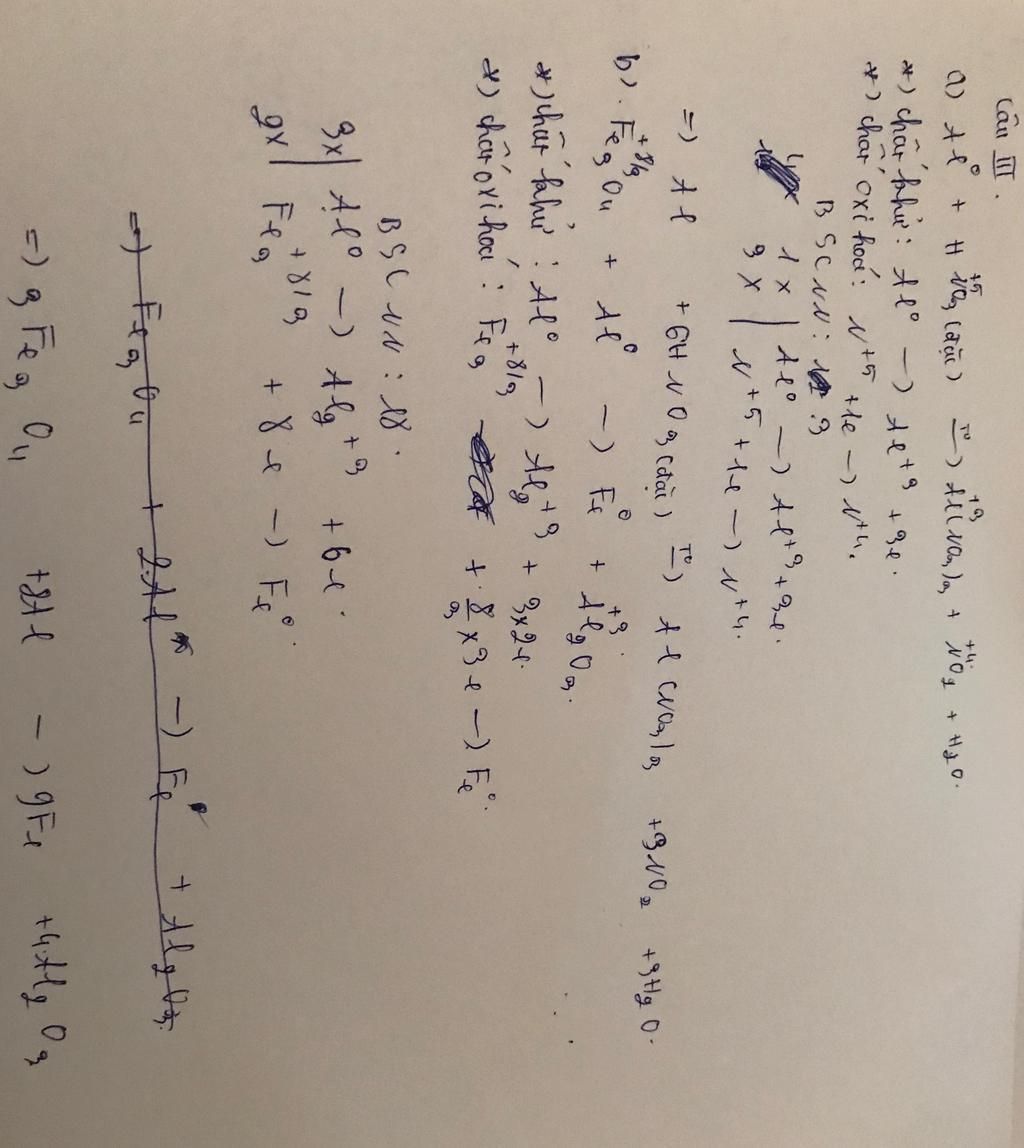 Câu III.
a) Al⁰ + HN⁺⁵O₃(đặc) —t⁰→ Al⁺³(NO₃)₃ + N⁺⁴O₂ + H₂O.
*) chất khử: Al⁰ → Al⁺³ + 3e.
*) chất oxi hoá: N⁺⁵ + 1e → N⁺⁴.
BSCNN: 3
1x | Al⁰ → Al⁺³ + 3e.
3x | N⁺⁵ + 1e → N⁺⁴.
=) Al + 6HNO₃(đặc) —T⁰→ Al(NO₃)₃ + 3NO₂ + 3H₂O.
b). Fe₃⁺⁸/³O₄ + Al⁰ → Fe⁰ + Al₂⁺³O₃.
*) chất khử: Al⁰ → Al₂⁺³ + 3x2e.
*) chất oxi hoá: Fe₃⁺⁸/³ + 8/3 x 3e → Fe⁰.
BSCNN: 18.
3x | Al⁰ → Al₂⁺³ + 6e.
2x | Fe₃⁺⁸/³ + 8e → Fe⁰.
=) Fe₃O₄ + 2.Al → Fe + Al₂O₃.
=) 3Fe₃O₄ + 8Al → 9Fe + 4.Al₂O₃